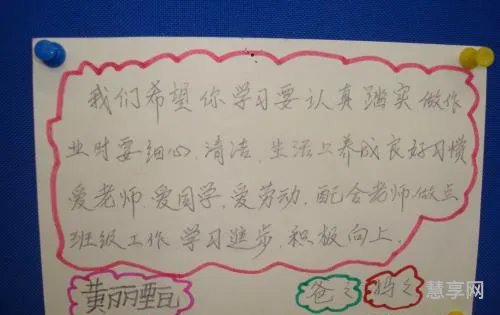 我们希望你学习要认真踏实做作
业时要细心、清洁、生活上养成良好习惯
爱老师、爱同学、爱劳动，配合老师做点
班级工作学习进步、积极向上、
黄丽甄 爸爸 妈妈 慧享网